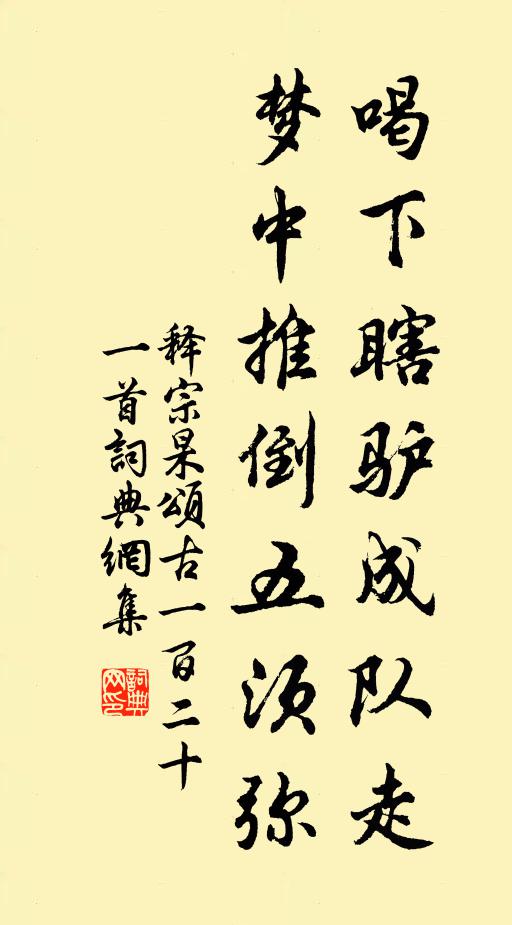 喝下瞎驴成队走
梦中推倒五须弥
释宗杲颂古一百二十
一首詞典網集
詞典网印